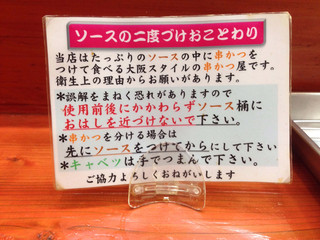 ソースの二度づけおことわり
当店はたっぷりのソースの中に串かつを
つけて食べる大阪スタイルの串かつ屋です。
衛生上の理由からお願いがあります。
*誤解をまねく恐れがありますので
使用前後にかかわらずソース桶に
おはしを近づけないで下さい。
*串かつを分ける場合は
先にソースをつけてからにして下さい
*キャベツは手でつまんで下さい。
ご協力よろしくおねがいします